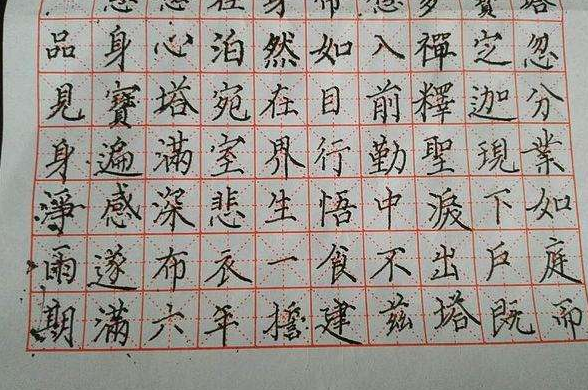 多寶塔
品身心泊然如入禪定忽
見寶塔宛在目前釋迦分
身遍滿空界行勤聖現業
淨感深悲生悟中淚下如
雨遂布衣一食不出戶庭
期滿六年誓建茲塔既而